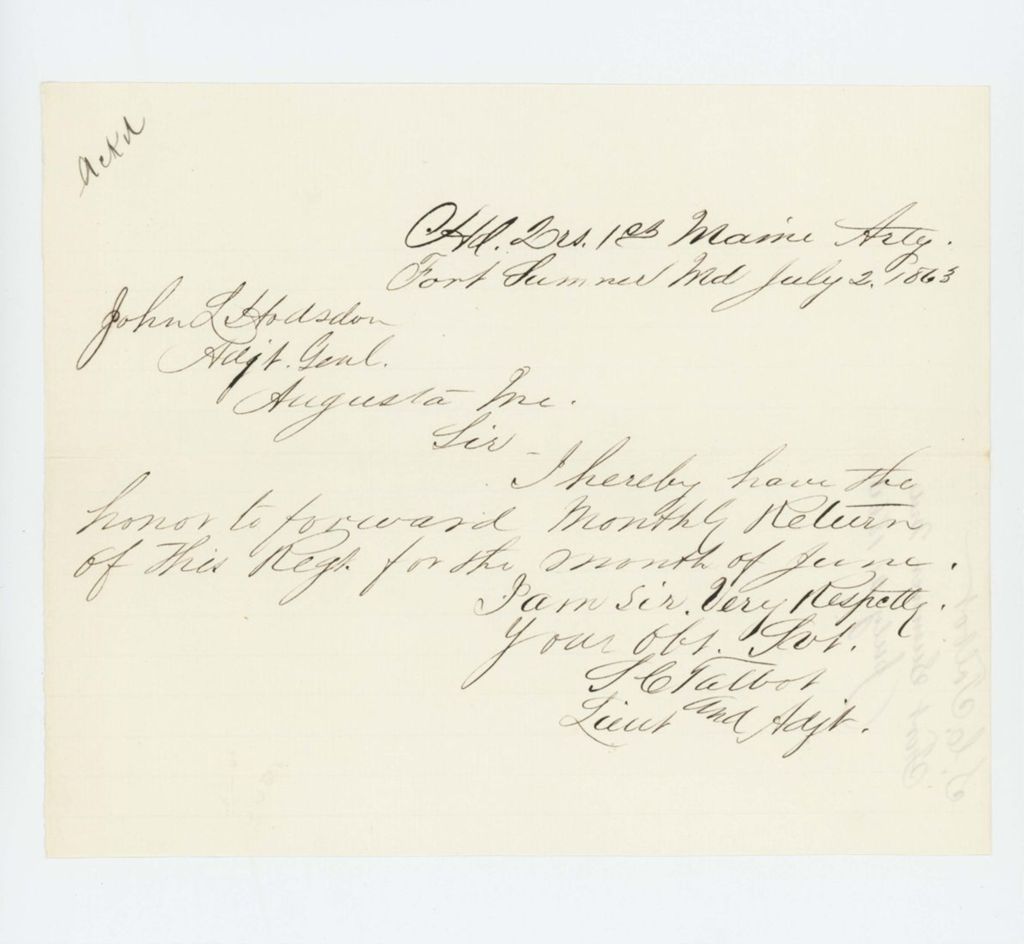 Ackd
Hd. Qrs. 1st Maine Arty.
Fort Sumner Md July 2, 1863
John L Hodsdon
Adjt. Genl.
Augusta Me.
Sir -
I hereby have the
honor to forward Monthly Return
of this Regt. for the month of June.
I am Sir. Very Respctly.
Your Obt. Svt.
S C Talbot
Lieut and Adjt.